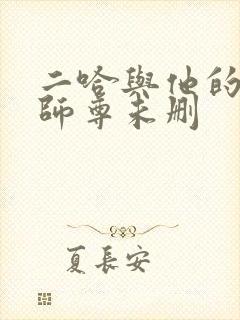 二哈與他的
師尊未删
夏長安